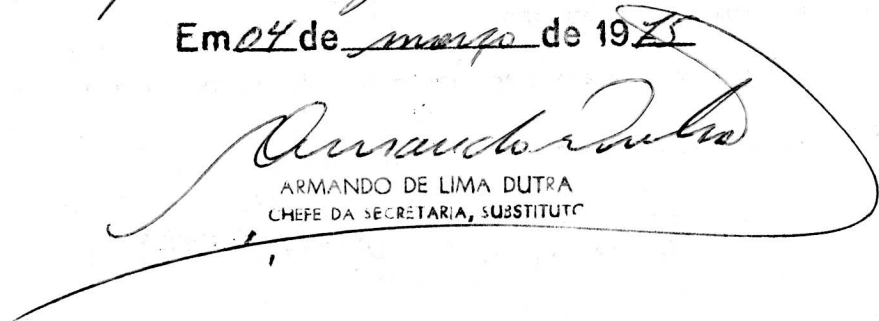 Em 04 de março de 1975
Armando Dutra
ARMANDO DE LIMA DUTRA
CHEFE DA SECRETARIA, SUBSTITUTO